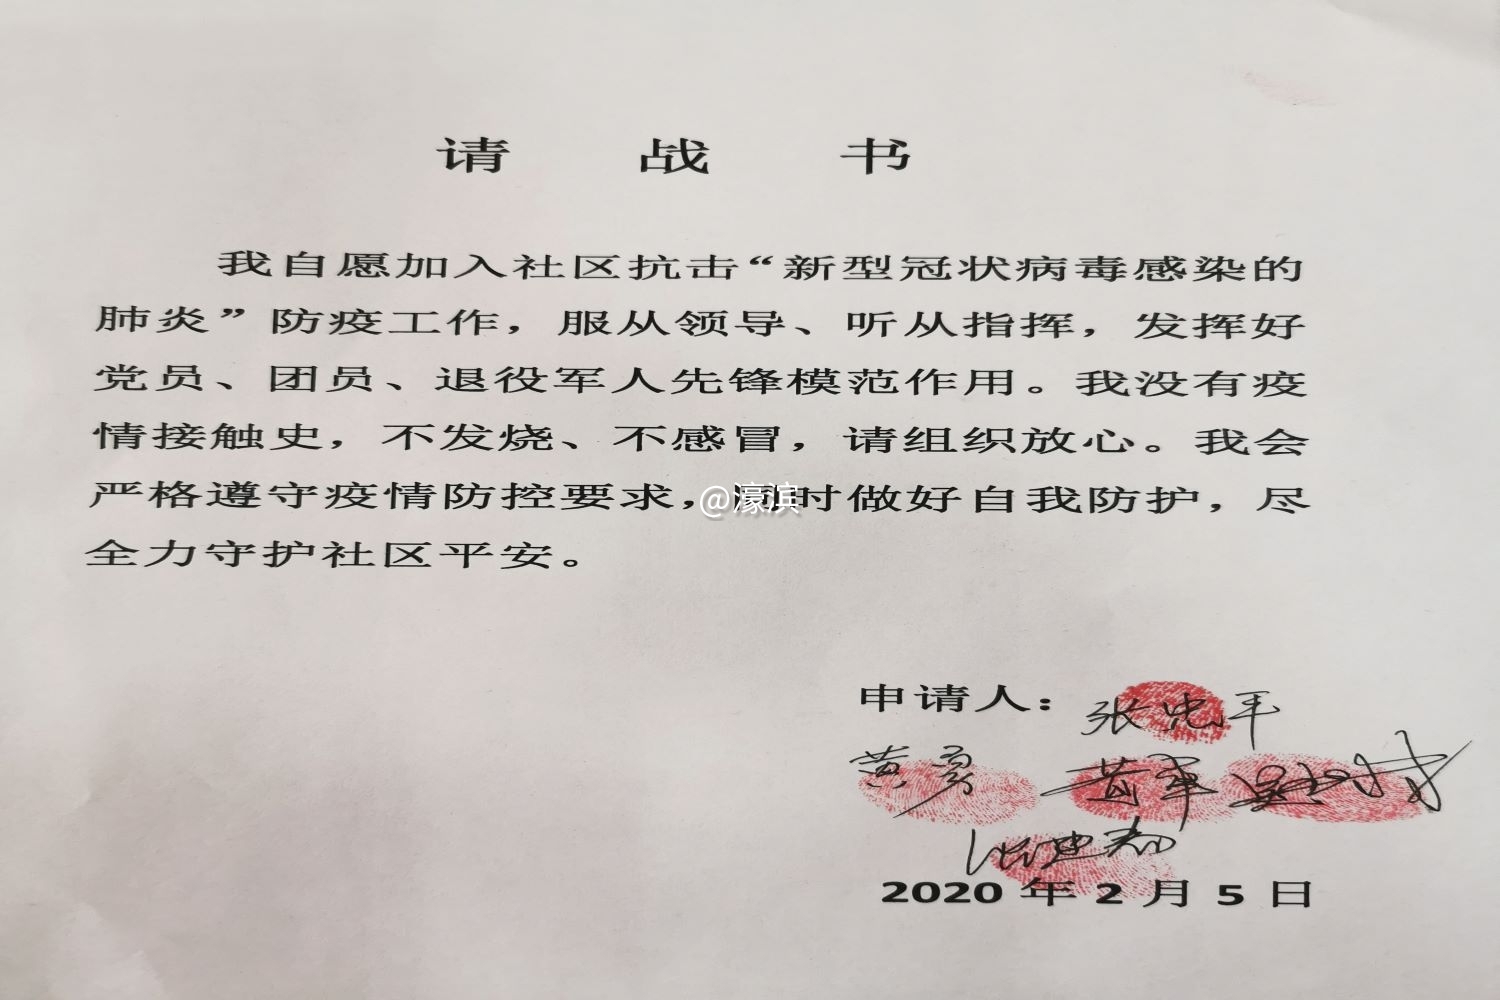 请 战 书
我自愿加入社区抗击“新型冠状病毒感染的
肺炎”防疫工作，服从领导、听从指挥，发挥好
党员、团员、退役军人先锋模范作用。我没有疫
情接触史，不发烧、不感冒，请组织放心。我会
严格遵守疫情防控要求，同时做好自我防护，尽
全力守护社区平安。
@濠滨
申请人：张忠平
黄勇 黄军
2020 年 2 月 5 日